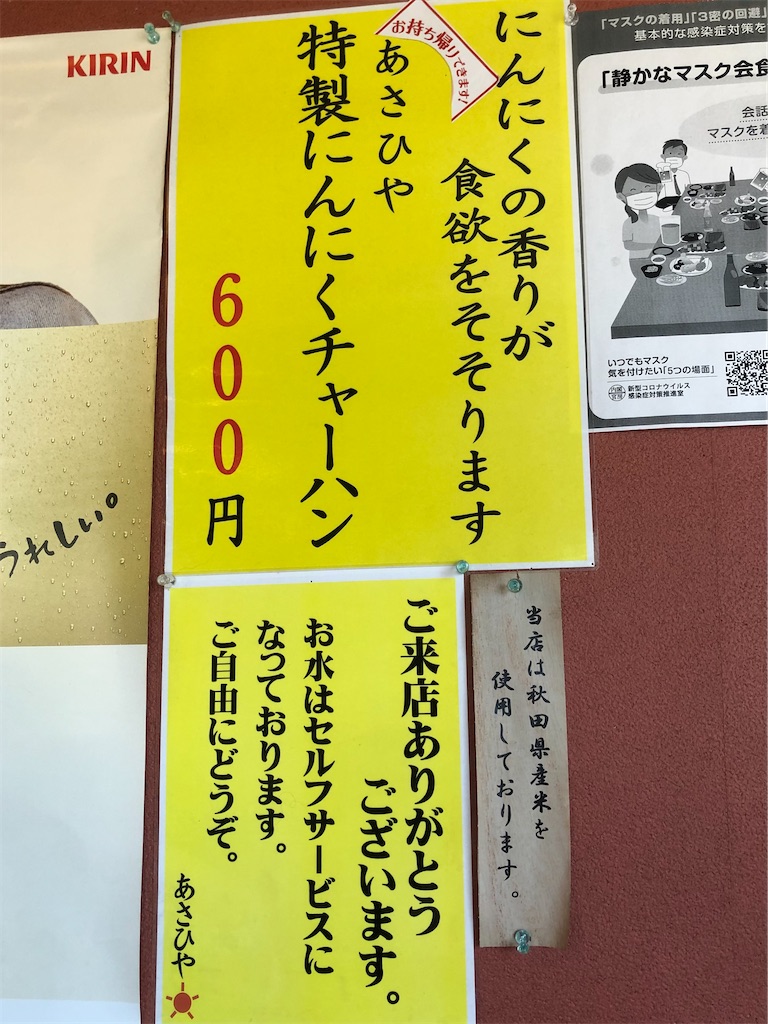 KIRIN
うれしい。
お持ち帰りできます!
にんにくの香りが
食欲をそそります
あさひや
特製にんにくチャーハン
600円
「マスクの着用」「3密の回避」
基本的な感染症対策を
「静かなマスク会食
会話
マスクを着
いつでもマスク
気を付けたい「5つの場面」
内閣官房
新型コロナウイルス
感染症対策推進室
ご来店ありがとう
ございます。
お水はセルフサービスに
なっております。
ご自由にどうぞ。
あさひや
当店は秋田県産米を
使用しております。